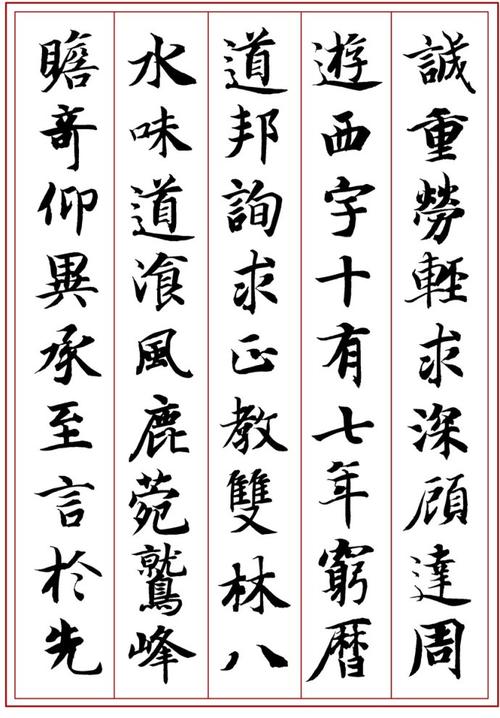 誠重勞輕求深顧達周
遊西字十有七年窮曆
道邦詢求正教雙林八
水味道飡風鹿菀鷲峰
瞻奇仰異承至言於先